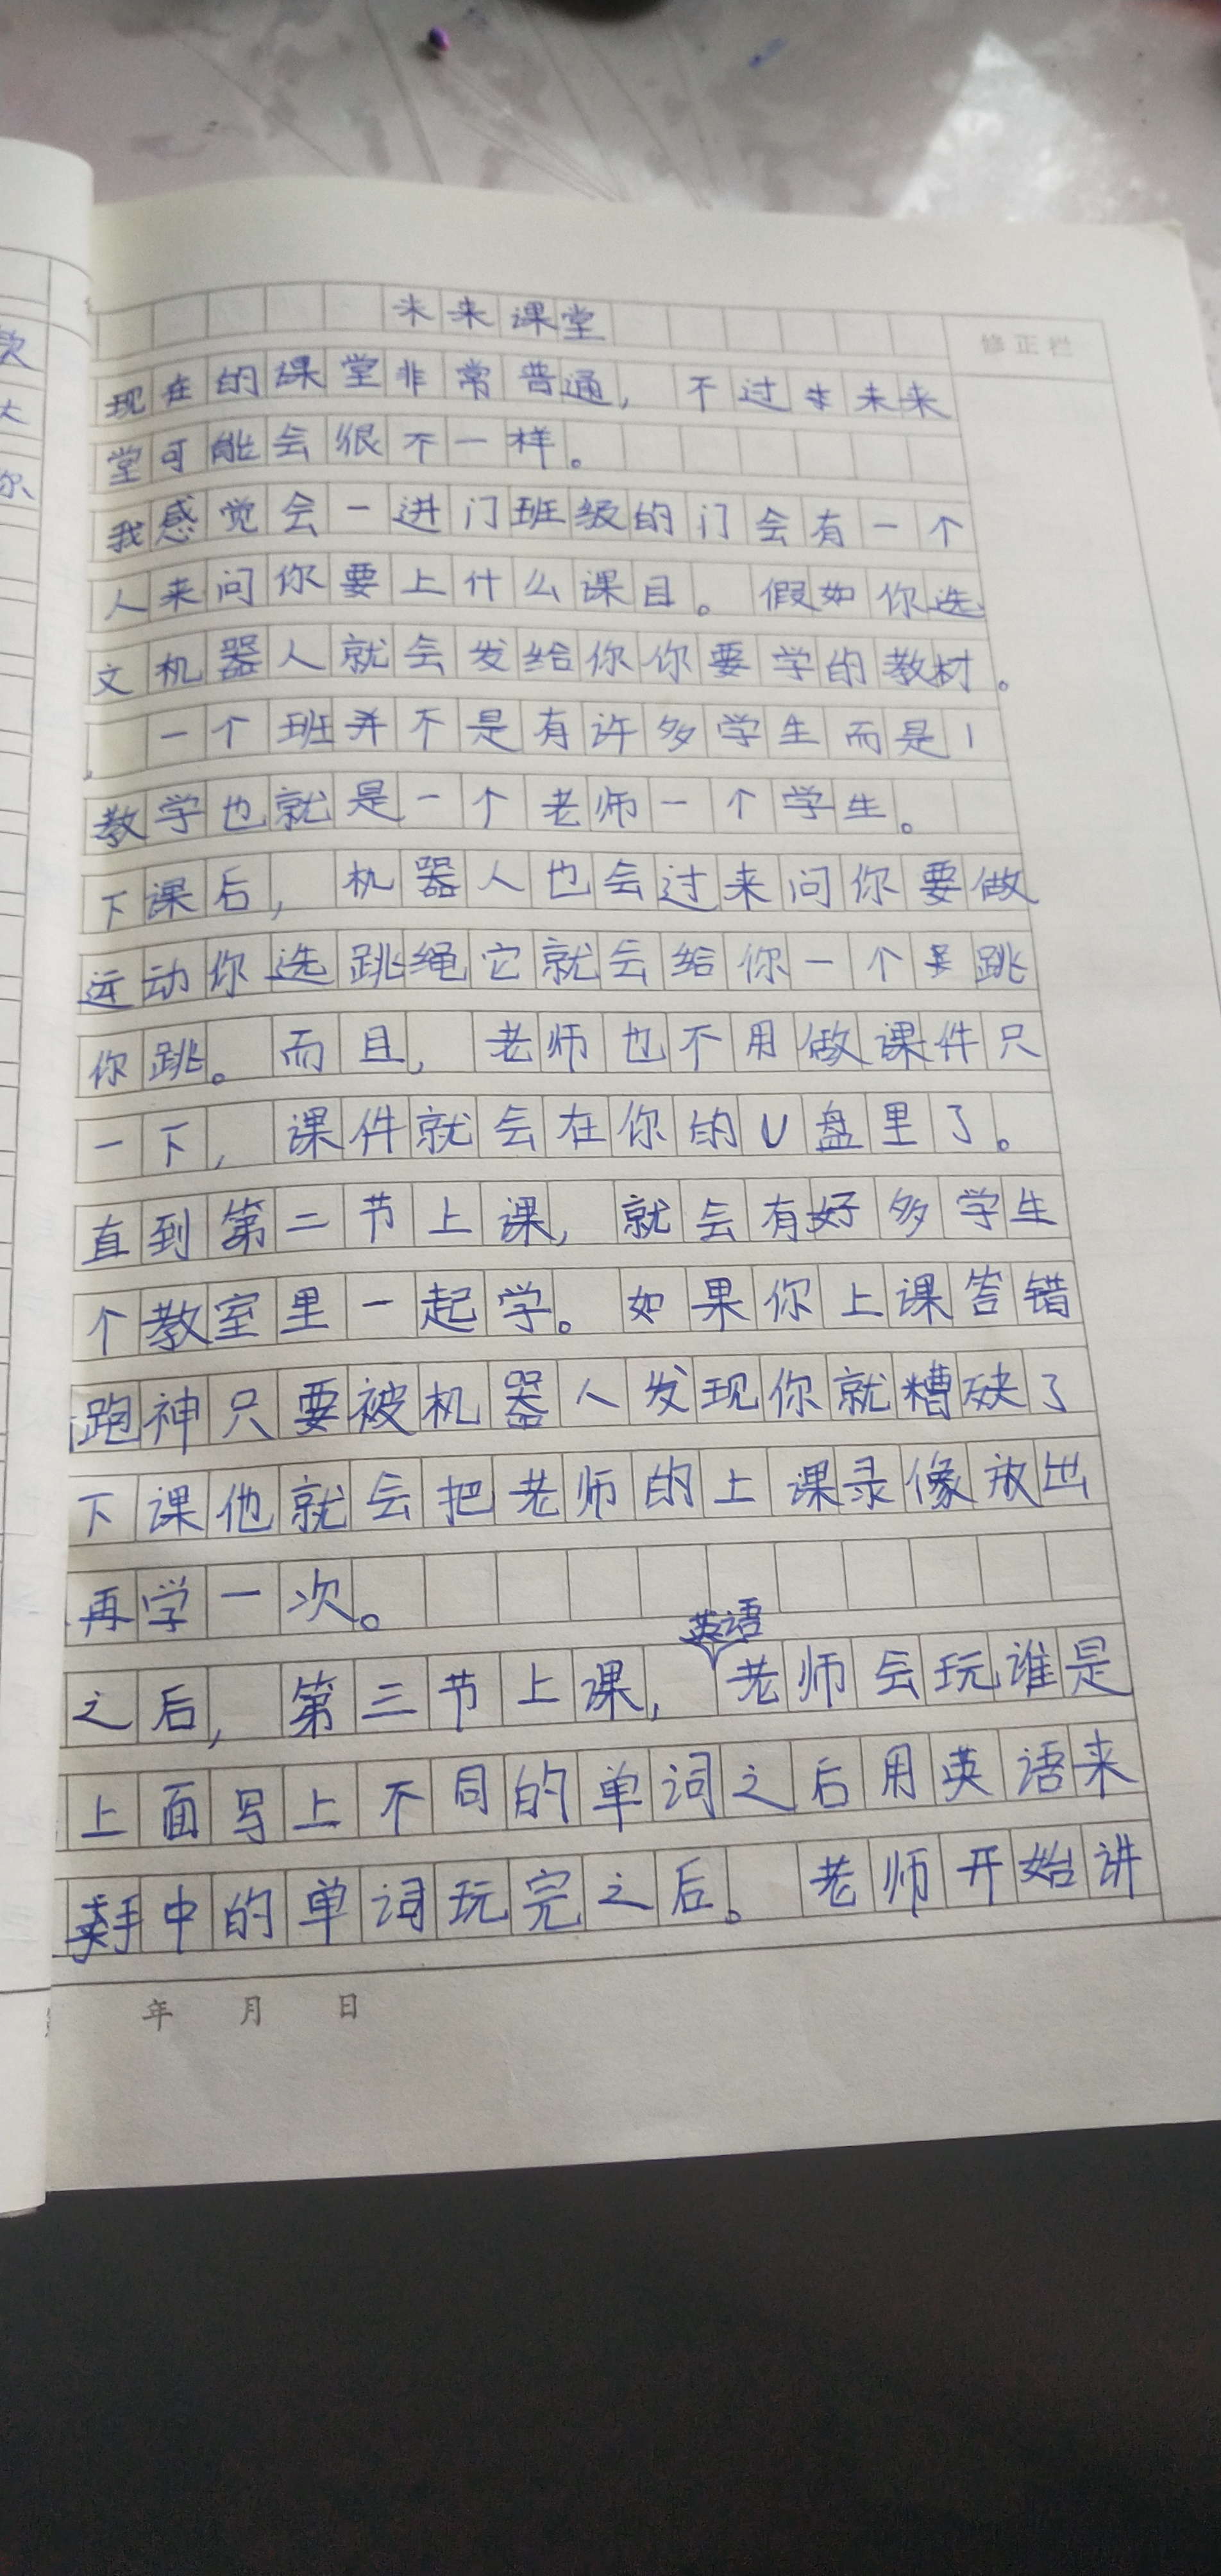 未来课堂
修正栏
现在的课堂非常普通，不过未来
堂可能会很不一样。
我感觉会一进门班级的门会有一个
人来问你要上什么课目。假如你选
文机器人就会发给你你要学的教材。
一个班并不是有许多学生而是1
教学也就是一个老师一个学生。
下课后，机器人也会过来问你要做
运动你选跳绳它就会给你一个跳
你跳。而且，老师也不用做课件只
一下，课件就会在你的U盘里了。
直到第二节上课，就会有好多学生
个教室里一起学。如果你上课答错
跑神只要被机器人发现你就糟殃了
下课他就会把老师的上课录像放出
再学一次。
之后，第三节上课，英语老师会玩谁是
上面写上不同的单词之后用英语来
手中的单词玩完之后。老师开始讲
年 月 日